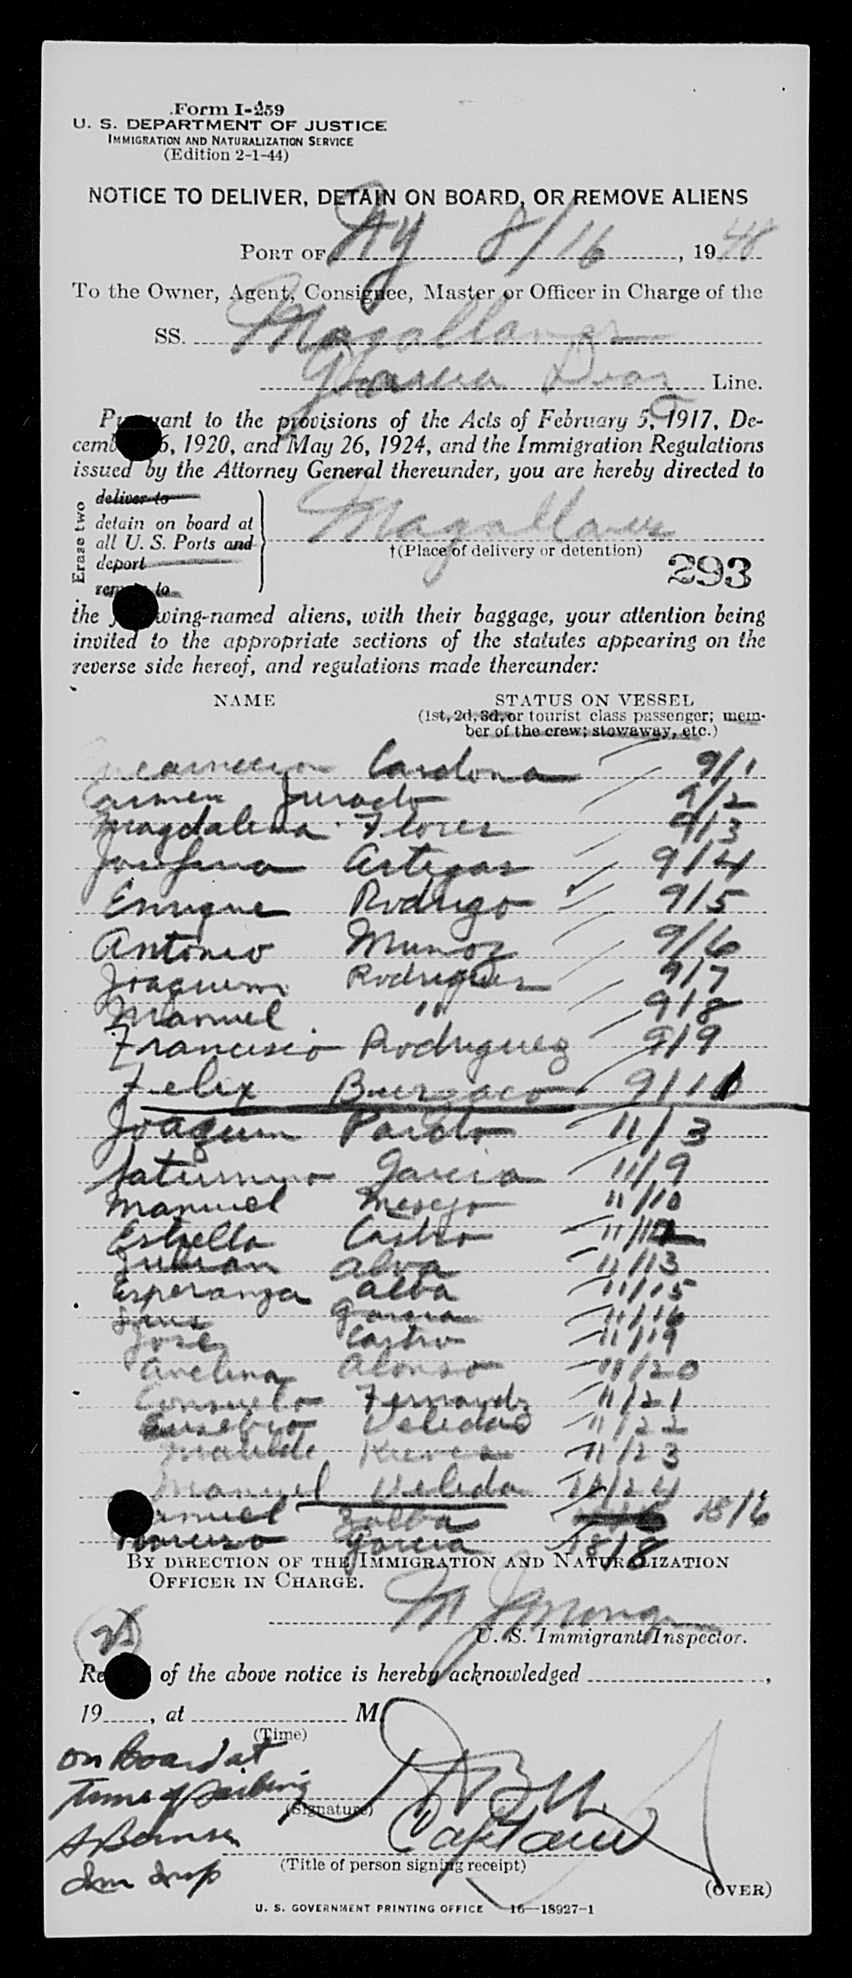 Form I-259
U. S. DEPARTMENT OF JUSTICE
IMMIGRATION AND NATURALIZATION SERVICE
(Edition 2-1-44)
NOTICE TO DELIVER, DETAIN ON BOARD, OR REMOVE ALIENS
PORT OF Ny 8/16, 1948
To the Owner, Agent, Consignee, Master or Officer in Charge of the
SS. Magallanes
Garcia Diaz Line.
Pursuant to the provisions of the Acts of February 5, 1917, De-
cember 26, 1920, and May 26, 1924, and the Immigration Regulations
issued by the Attorney General thereunder, you are hereby directed to
Erase two
deliver to
detain on board at
all U. S. Ports and
deport
remove to
Magallanes
†(Place of delivery or detention)
293
the following-named aliens, with their baggage, your attention being
invited to the appropriate sections of the statutes appearing on the
reverse side hereof, and regulations made thereunder:
NAME STATUS ON VESSEL
(1st, 2d, 3d, or tourist class passenger; mem-
ber of the crew; stowaway, etc.)
Encarnacion Cardona 9/1
Carmen Jurado 9/2
Magdalena Flores 9/3
Josefina Artegas 9/4
Enrique Rodrigo 9/5
Antonio Munoz 9/6
Joaquim Rodriguez 9/7
Manuel " 9/8
Francisco Rodriguez 9/9
Felix 9/11
Joaquin Pardo 11/3
Saturnino Garcia 11/9
Manuel 11/10
Estrella Castro 11/12
Julian Alva 11/13
Esperanza Alba 11/15
Luis Garcia 11/16
Jose Castro 11/19
Avelina Alonso 11/20
Consuelo Fernandz 11/21
Eusebio Veleda 11/22
Matilde 11/23
Manuel Veleda 11/24
Manuel Zalba 18/6
Narciso Garcia 18/8
BY DIRECTION OF THE IMMIGRATION AND NATURALIZATION
OFFICER IN CHARGE.
U. S. Immigrant Inspector.
25
Receipt of the above notice is hereby acknowledged ,
19 , at M.
(Time)
On Board at
Time of Sailing
(Signature)
Captain
(Title of person signing receipt)
Imm Insp
(OVER)
U. S. GOVERNMENT PRINTING OFFICE 16—18927-1